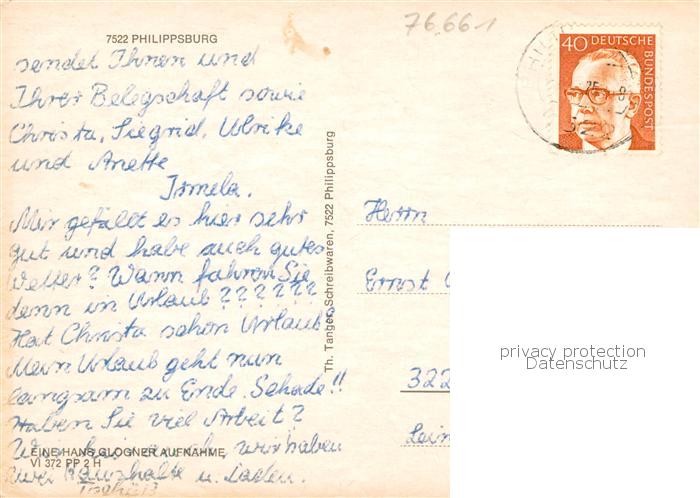 7522 PHILIPPSBURG
sendet Ihnen und
Ihrer Belegschaft sowie
Christa, Siegrid, Ulrike
und Anette
Irmela.
Mir gefällt es hier sehr
gut und habe auch gutes
Wetter? Wann fahren Sie
denn in Urlaub??????
Hat Christa schon Urlaub?
Mein Urlaub geht nun
langsam zu Ende. Schade!!
Haben Sie viel Arbeit?
Wir auch, wir haben
zwei Haushalte u. Laden.
EINE HANS GLOGNER AUFNAHME
VI 372 PP 2 H
Th. Tanger, Schreibwaren, 7522 Philippsburg
76.661
40 DEUTSCHE
BUNDESPOST
Herrn
Ernst
322
privacy protection
Datenschutz